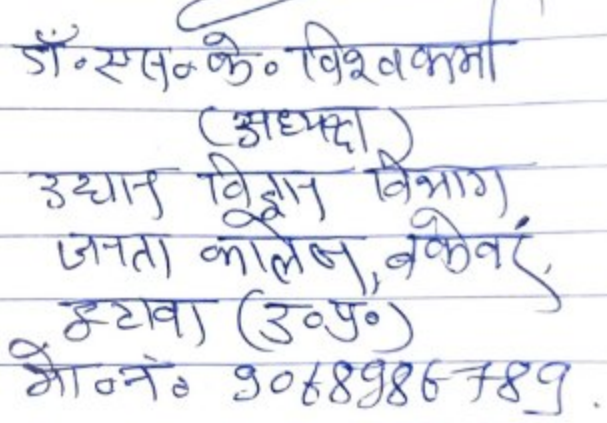 डॉ॰ एस॰ के॰ विश्वकर्मा
(अध्यक्ष)
उद्यान विज्ञान विभाग
जनता कालेज, बकेवर,
इटावा (उ॰प्र॰)
मो॰नं॰ 9068986789.